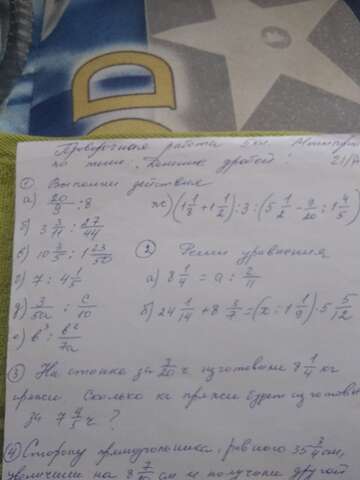 Проверочная работа 5 кл.
по теме: "Деление дробей".
① Выполни действия
а) 20/9 : 8 ж) (1 1/8 + 1 1/2) : 3 : (5 1/2 - 9/20 : 1 4/5)
б) 3 3/11 : 27/44
в) 10 3/5 : 1 23/30 ② Реши уравнения
г) 7 : 4 1/5 а) 8 1/4 = а : 2/11
д) 3/5а : с/10 б) 24 1/14 + 8 3/7 = (х : 1 1/9) · 5 5/12
е) в³ : в²/7а
③ На станке за 3/20 ч изготовили 8 1/4 кг
пряжи. Сколько кг пряжи будет изготов
за 7 4/5 ч ?
④ Сторону прямоугольника, равного 35 3/4 см,
увеличили на 8 7/ см и получили другой